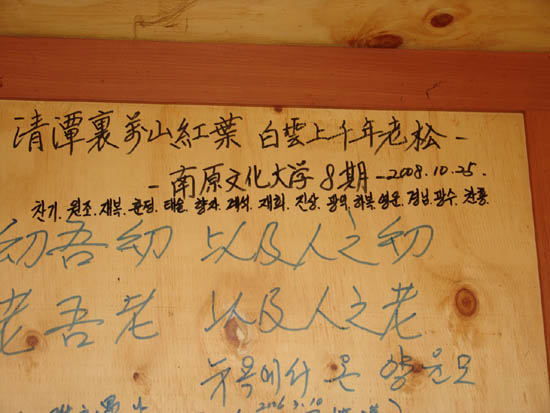 清潭裏萬山紅葉 白雲上千年老松 -
- 南原文化大学 8期 - 2008.10.25.
찬기. 원조. 재복. 태술. 향자. 재희. 진상. 광옥. 하복. 영운. 정님. 광수. 찬홍.
幼吾幼 以及人之幼
老吾老 以及人之老
뉴욕에서 온 양윤모
2006.3.10